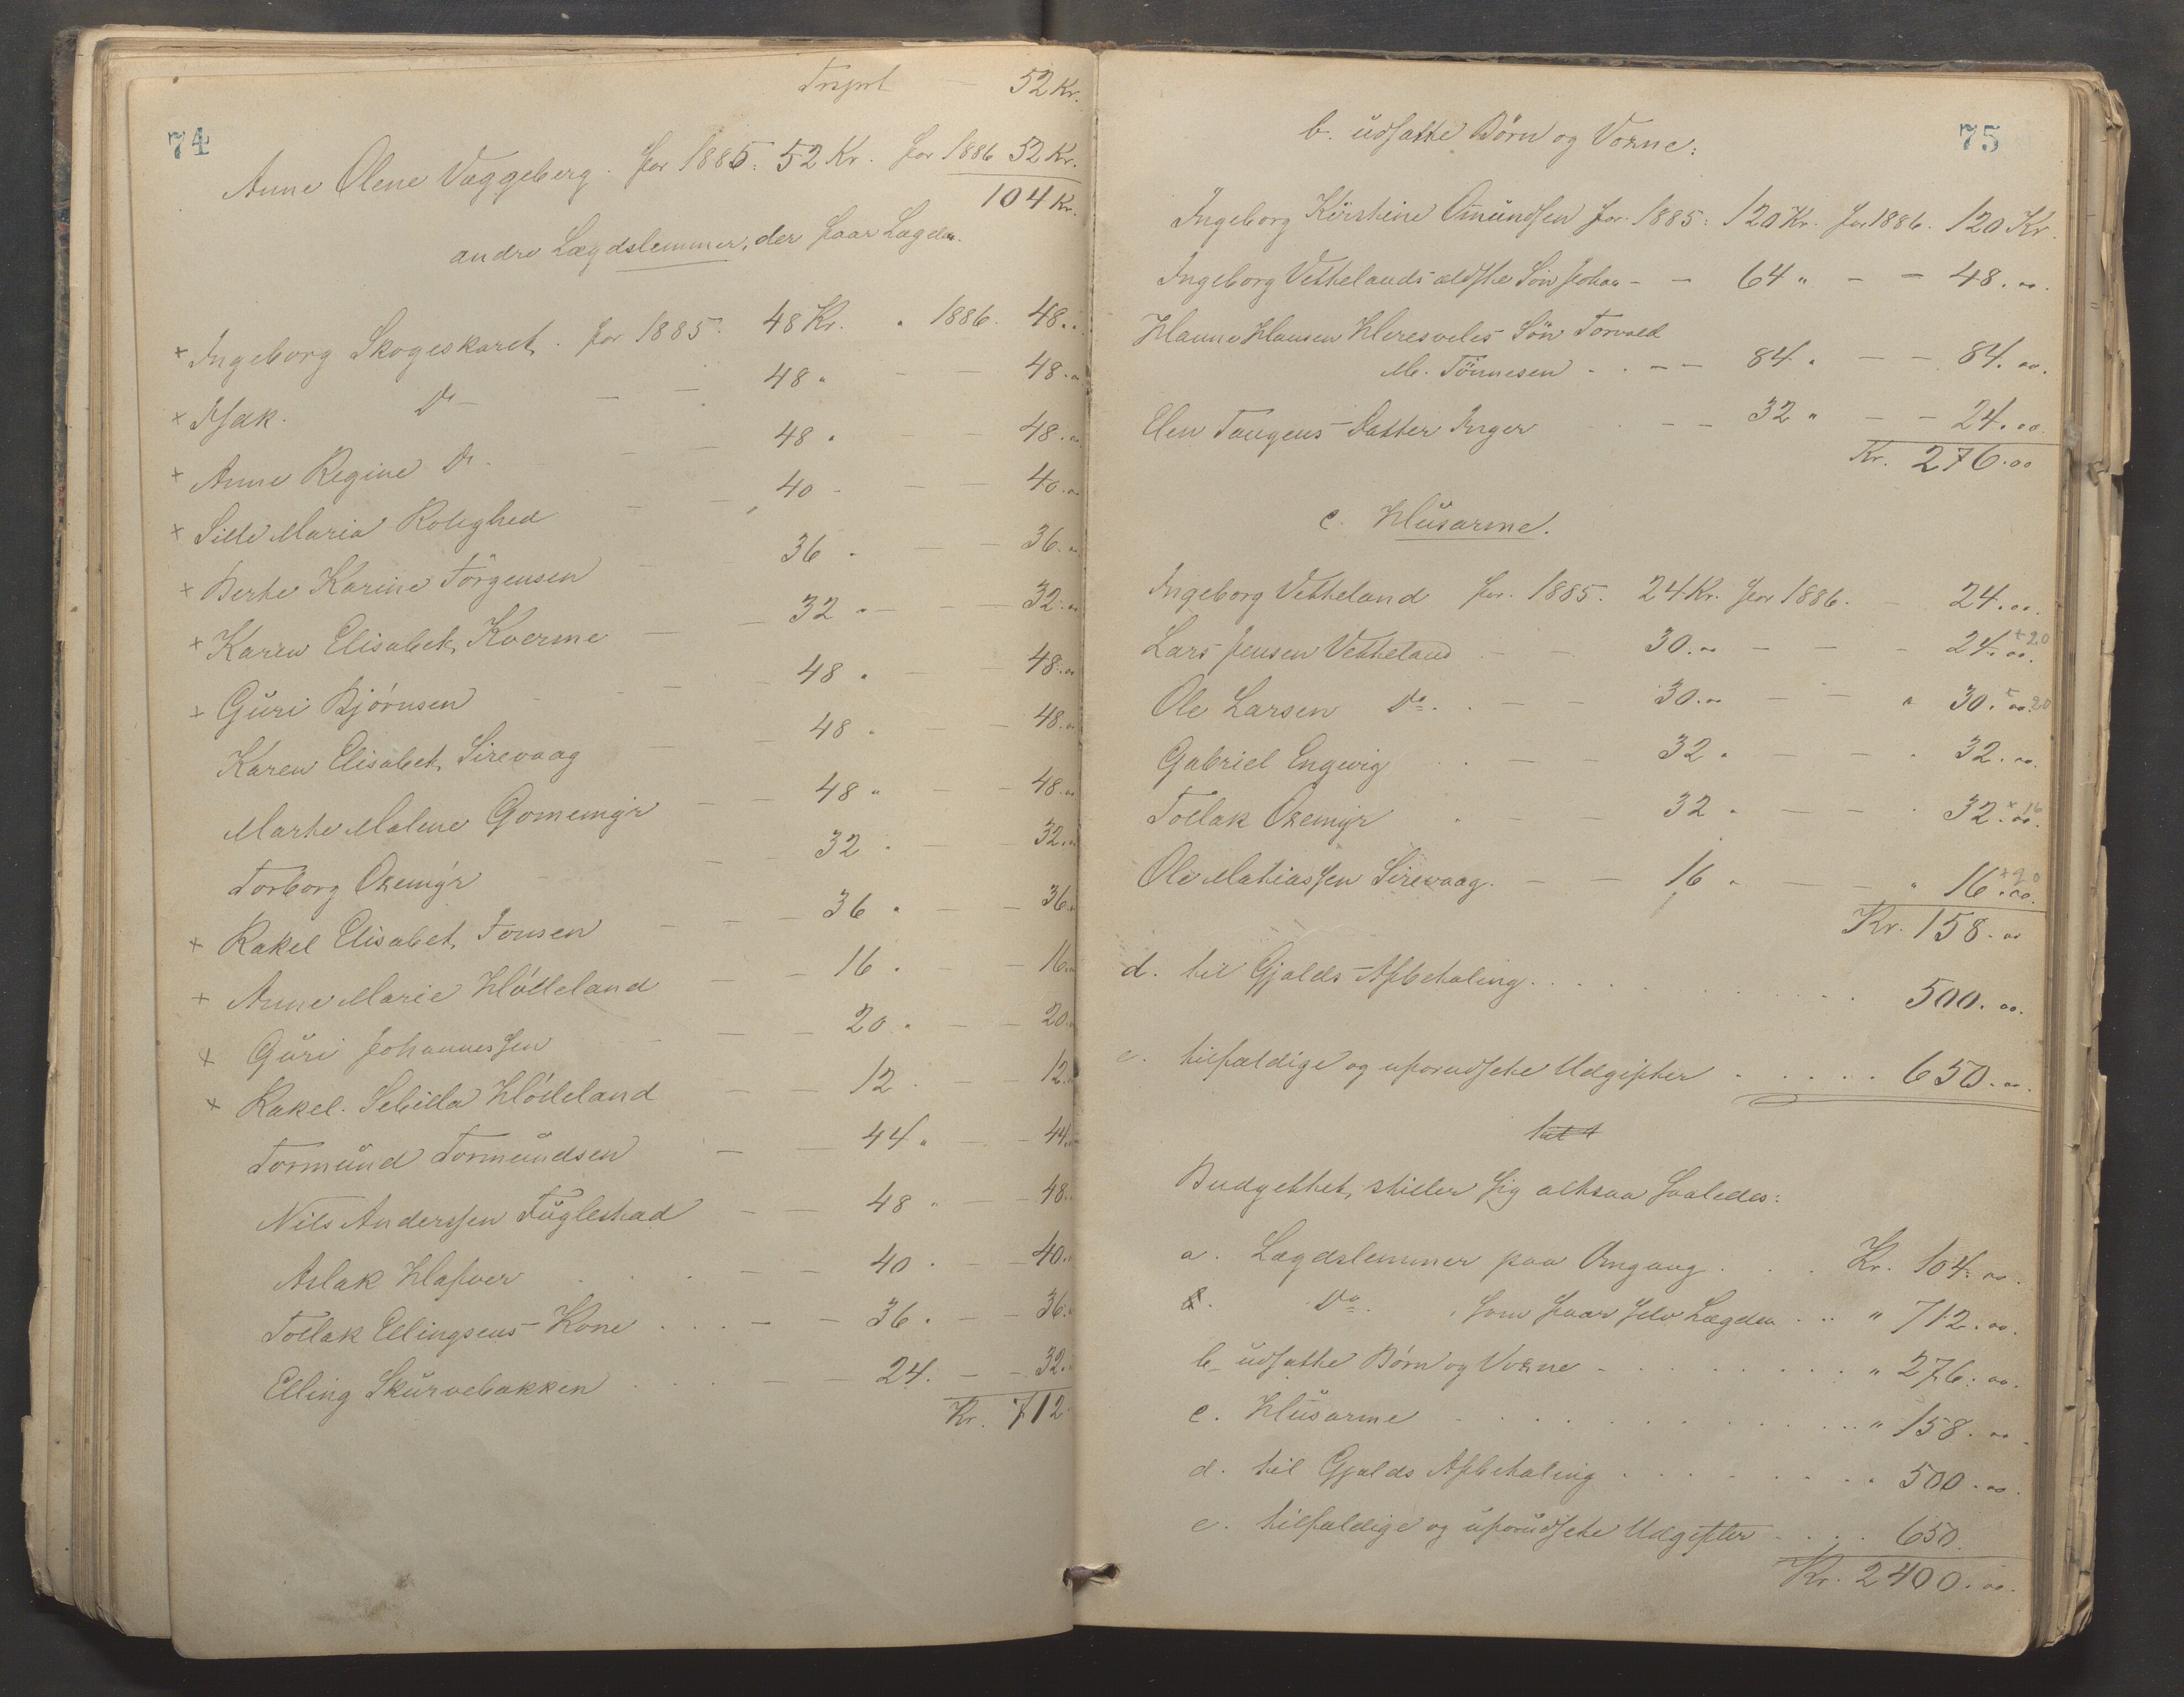 74
Trsprt — 52 Kr.
Anne Olene Væggeberg. for 1885: 52 Kr. for 1886 52 Kr.
104 Kr.
andre Lægdslemmer, der faar Lægden.
+ Ingeborg Skogeskaret. for 1885. 48 Kr. " 1886. 48."
+ Isak. Do — — — 48 " — — 48."
+ Anne Regine Do — — 48 " — — 48."
+ Sille Maria Rolighed — — 40 — — 40."
+ Berte Karine Törgensen — — 36 " — — 36."
+ Karen Elisabet Kverme — — 32 " — — 32."
+ Güri Bjørnsen — — 48 " — — 48."
Karen Elisabet Sirevaag — — 48 " — — 48."
Marte Malene Gomemÿr — — 48 " — — 48."
Torborg Oxemÿr — — 32 " — — 32."
+ Rakel Elisabet Tonsen — — 36 " — — 36."
+ Anne Marie Hölleland — — 16 " — — 16."
+ Güri Johannessen — — 20 " — — 20."
+ Rakel. Sebilla Hölleland — — 12 " — — 12."
Tormünd Tormündsen — — 44 " — — 44."
Nils Anderssen Füglestad — — 48 " — — 48."
Aslak Hafver . . . — — 40 " — — 40."
Tollak Ellingsens Kone . . . — — 36 " — — 36."
Elling Skürvebakken . . . — — 24. — — 32."
Kr. 712
75
b. udsatte Börn og Voxne:
Ingeborg Kirstine Omündsen for 1885: 120 Kr. for 1886. 120 Kr.
Ingeborg Vettelands ældste Sön Johan — — 64 " — — 48."
Hanne Hansen Heresvelas Sön Torvald
M. Tönnesen . . — — 84 " — — 84."
Elen Tangens Datter Inger — — 32 " — — 24."
Kr. 276.00
c. Hüsarme.
Ingeborg Vetteland for. 1885. 24 Kr. for 1886. — 24."
Lars Jensen Vetteland — — 30." — — — 24." +20
Ole Larsen Do. . — — 30." — — " 30." +20
Gabriel Engevig . . — — 32 " — — " 32."
Tollak Oxemÿr . — — 32 " — — " 32." +16
Ole Mathiassen Sirevaag. — — 16 " — — " 16." +20
Kr. 158."
d. til Gjælds-Afbetaling . . . . . . . 500."
e. tilfældige og uforudsete Udgifter . . . . . 650."
Budgettet stiller sig altsaa saaledes:
a. Lægdslemmer paa Omgang . . . Kr. 104."
Do. som faar selv Lægden . . " 712."
b. udsatte Börn og Voxne — . . . . . . . " 276."
c. Hüsarme . . . . . . . . . . " 158."
d. til Gjælds Afbetaling . . . . . . . 500."
e. tilfældige og uforudsete Udgifter . . . . 650.
Kr. 2400."